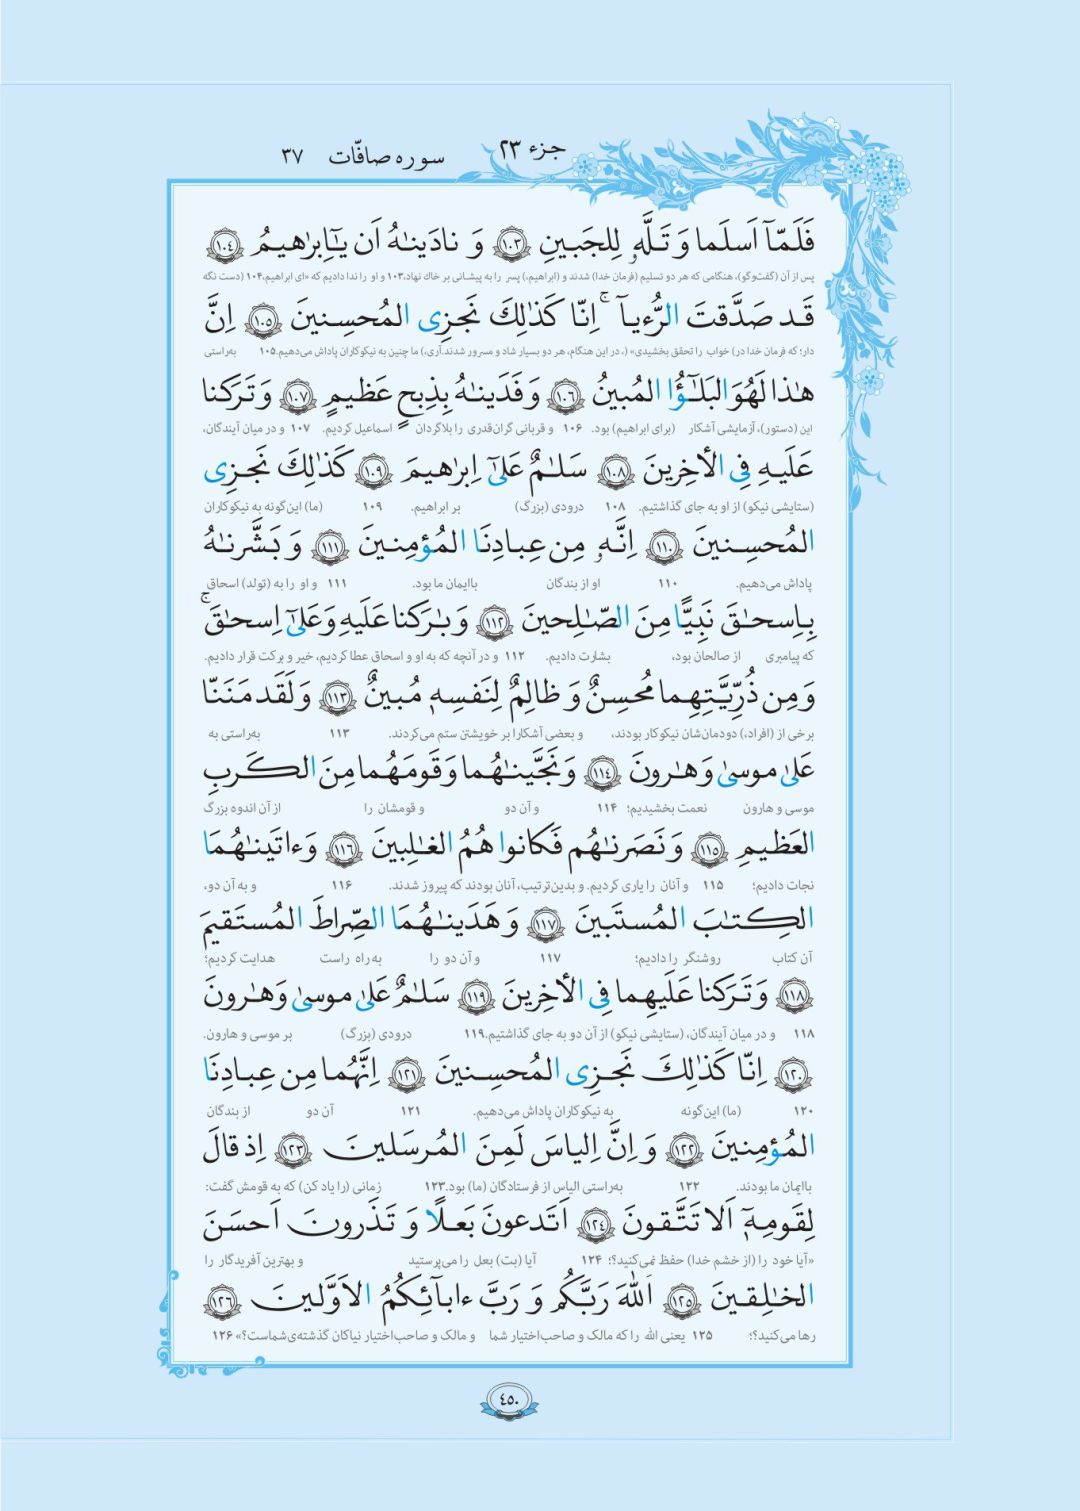 جزء ۲۳
سوره صافّات ۳۷
فَلَمّآ اَسلَما وَ تَلَّهٗ لِلجَبينِ ١٠٣ وَ نادَينٰهُ اَن يٰٓاِبرٰهيمُ ١٠٤
پس از آن (گفت‌وگو)، هنگامی که هر دو تسلیم (فرمان خدا) شدند و (ابراهیم،) پسر را به پیشانی بر خاک نهاد، ۱۰۳ و او را ندا دادیم که «ای ابراهیم، ۱۰۴ (دست نگه
قَد صَدَّقتَ الرُّءيآ ۚ اِنّا كَذٰلِكَ نَجزِى المُحسِنينَ ١٠٥ اِنَّ
دار؛ که فرمان خدا در) خواب را تحقق بخشیدی» (، در این هنگام، هر دو بسیار شاد و مسرور شدند.آری،) ما چنین به نیکوکاران پاداش می‌دهیم. ۱۰۵ به‌راستی
هٰذا لَهُوَ البَلٰٓؤُا المُبينُ ١٠٦ وَ فَدَينٰهُ بِذِبحٍ عَظيمٍ ١٠٧ وَ تَرَكنا
این (دستور)، آزمایشی آشکار (برای ابراهیم) بود. ۱۰۶ و قربانی گران‌قدری را بلاگردان اسماعیل کردیم. ۱۰۷ و در میان آیندگان،
عَلَيهِ فِى الأخِرينَ ١٠٨ سَلٰمٌ عَلىٰٓ اِبرٰهيمَ ١٠٩ كَذٰلِكَ نَجزِى
(ستایشی نیکو) از او به جای گذاشتیم. ۱۰۸ درودی (بزرگ) بر ابراهیم. ۱۰۹ (ما) این‌گونه به نیکوکاران
المُحسِنينَ ١١٠ اِنَّهٗ مِن عِبادِنَا المُؤمِنينَ ١١١ وَ بَشَّرنٰهُ
پاداش می‌دهیم. ۱۱۰ او از بندگان باایمان ما بود. ۱۱۱ و او را به (تولد) اسحاق
بِاِسحٰقَ نَبِيًّا مِنَ الصّٰلِحينَ ١١٢ وَ بٰرَكنا عَلَيهِ وَ عَلىٰٓ اِسحٰقَ ۚ
که پیامبری از صالحان بود، بشارت دادیم. ۱۱۲ و در آنچه که به او و اسحاق عطا کردیم، خیر و برکت قرار دادیم.
وَ مِن ذُرِّيَّتِهِما مُحسِنٌ وَ ظالِمٌ لِنَفسِهٖ مُبينٌ ١١٣ وَ لَقَد مَنَنّا
برخی از (افراد،) دودمان‌شان نیکوکار بودند، و بعضی آشکارا بر خویشتن ستم می‌کردند. ۱۱۳ به‌راستی به
عَلىٰ موسىٰ وَ هٰرونَ ١١٤ وَ نَجَّينٰهُما وَ قَومَهُما مِنَ الكَربِ
موسی و هارون نعمت بخشیدیم؛ ۱۱۴ و آن دو و قومشان را از آن اندوه بزرگ
العَظيمِ ١١٥ وَ نَصَرنٰهُم فَكانوا هُمُ الغٰلِبينَ ١١٦ وَ ءاتَينٰهُمَا
نجات دادیم؛ ۱۱۵ و آنان را یاری کردیم. و بدین‌ترتیب، آنان بودند که پیروز شدند. ۱۱۶ و به آن دو،
الكِتٰبَ المُستَبينَ ١١٧ وَ هَدَينٰهُمَا الصِّراطَ المُستَقيمَ
آن کتاب روشنگر را دادیم؛ ۱۱۷ و آن دو را به راه راست هدایت کردیم؛
١١٨ وَ تَرَكنا عَلَيهِما فِى الأخِرينَ ١١٩ سَلٰمٌ عَلىٰ موسىٰ وَ هٰرونَ
۱۱۸ و در میان آیندگان، (ستایشی نیکو) از آن دو به جای گذاشتیم. ۱۱۹ درودی (بزرگ) بر موسی و هارون.
١٢٠ اِنّا كَذٰلِكَ نَجزِى المُحسِنينَ ١٢١ اِنَّهُما مِن عِبادِنَا
۱۲۰ (ما) این‌گونه به نیکوکاران پاداش می‌دهیم. ۱۲۱ آن دو از بندگان
المُؤمِنينَ ١٢٢ وَ اِنَّ اِلياسَ لَمِنَ المُرسَلينَ ١٢٣ اِذ قالَ
باایمان ما بودند. ۱۲۲ به‌راستی الیاس از فرستادگان (ما) بود. ۱۲۳ زمانی (را یاد کن) که به قومش گفت:
لِقَومِهٖٓ اَلا تَتَّقونَ ١٢٤ اَتَدعونَ بَعلًا وَ تَذَرونَ اَحسَنَ
«آیا خود را (از خشم خدا) حفظ نمی‌کنید؟؛ ۱۲۴ آیا (بت) بعل را می‌پرستید و بهترین آفریدگار را
الخٰلِقينَ ١٢٥ اَللّٰهَ رَبَّكُم وَ رَبَّ ءابآئِكُمُ الاَوَّلينَ ١٢٦
رها می‌کنید؟؛ ۱۲۵ یعنی الله را که مالک و صاحب‌اختیار شما و مالک و صاحب‌اختیار نیاکان گذشته‌ی شماست؟» ۱۲۶
٤٥٠